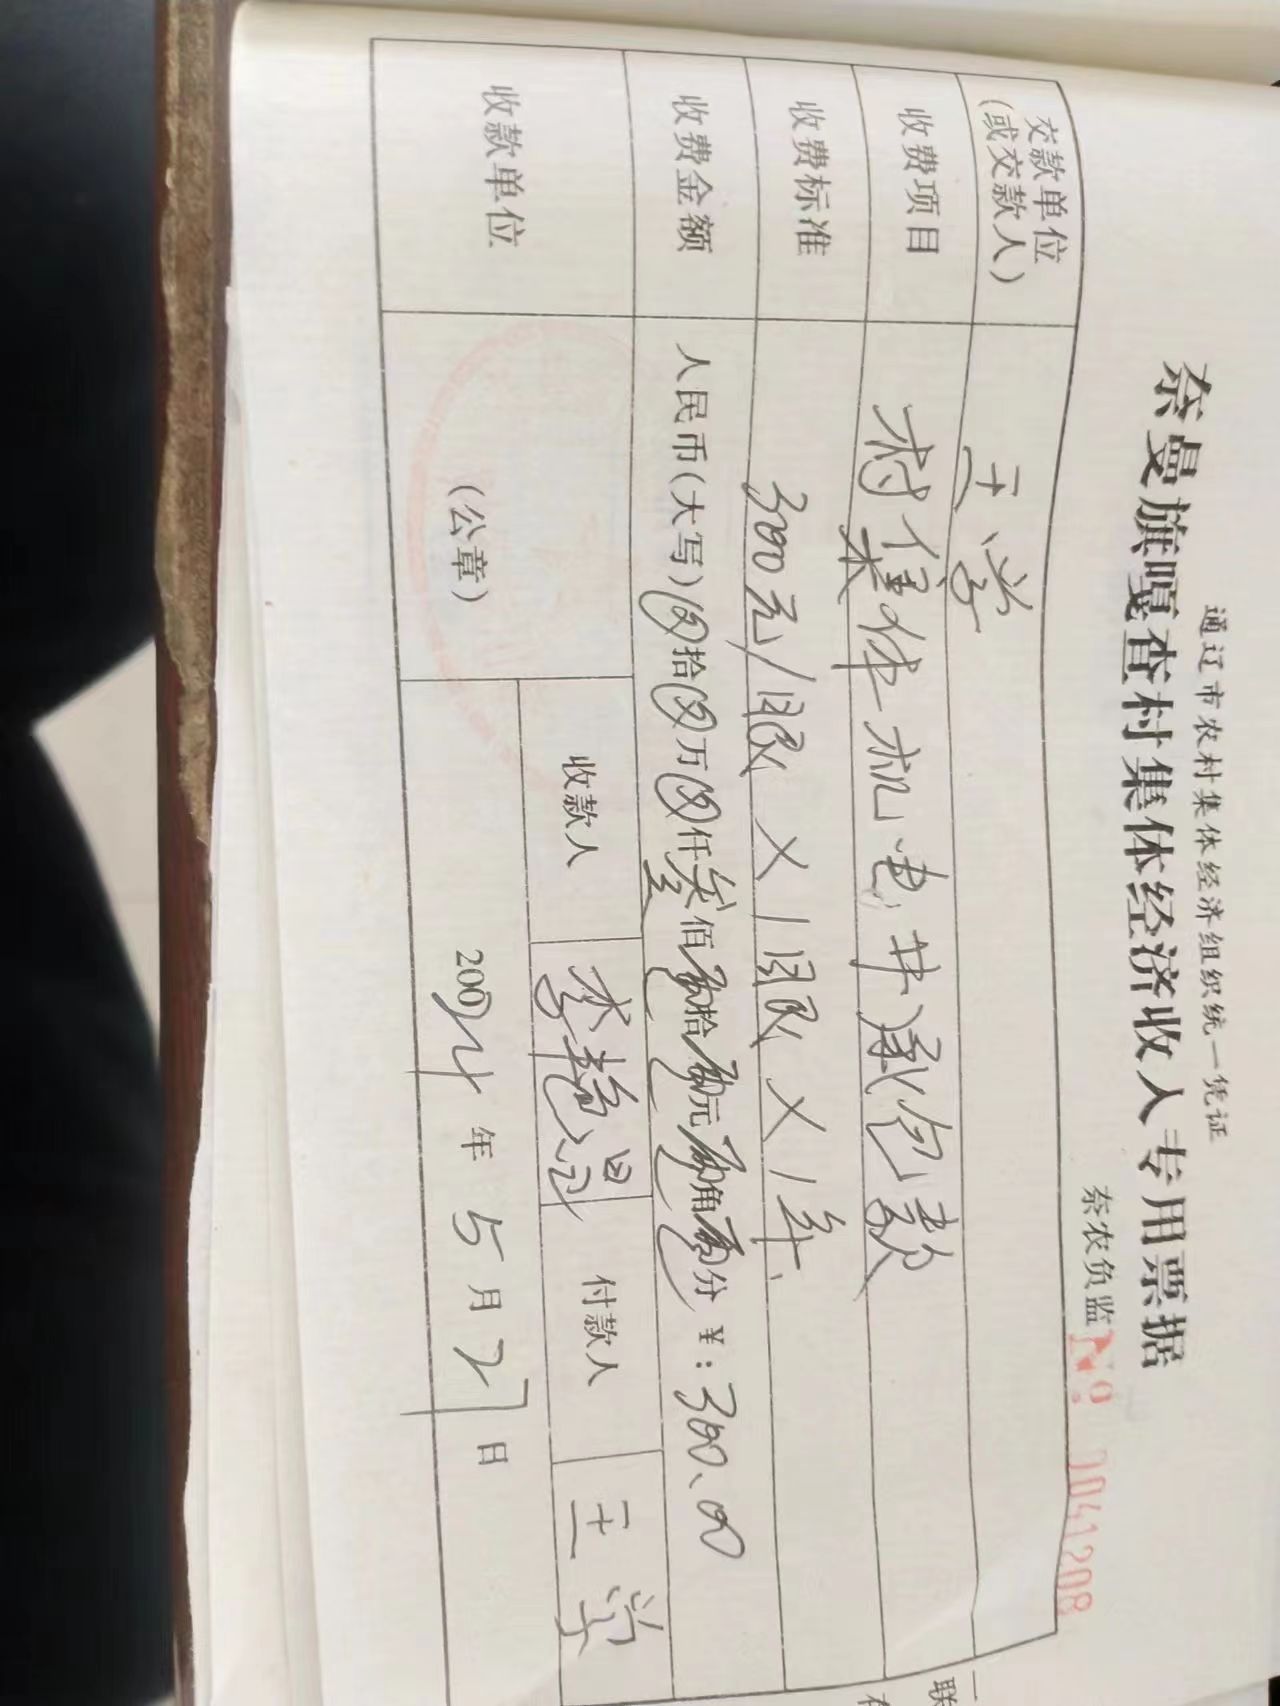 通辽市农村集体经济组织统一凭证
奈曼旗嘎查村集体经济收入专用票据
奈农负监 No 1041208
交款单位
(或交款人) 王学
收费项目 村集体机电井承包款
收费标准 300元/眼×1眼×1年
收费金额 人民币(大写)⊗拾⊗万⊗仟叁佰零拾零元零角零分 ¥:300.00
收款单位 (公章) 收款人 付款人 王学
年5月27日
一
联